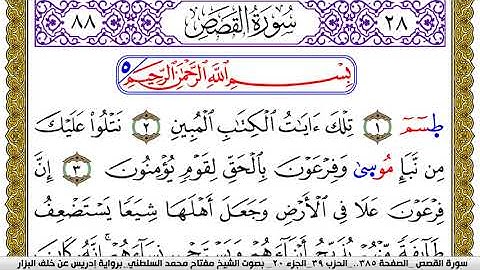 ٢٨ سُورَةُ القَصَصِ ٨٨
بِسْمِ اللَّهِ الرَّحْمَٰنِ الرَّحِيمِ ٥
طسٓمٓ ١ تِلْكَ ءَايَٰتُ الْكِتَٰبِ الْمُبِينِ ٢ نَتْلُوا۟ عَلَيْكَ
مِن نَّبَإِ مُوسَىٰ وَفِرْعَوْنَ بِالْحَقِّ لِقَوْمٍ يُؤْمِنُونَ ٣ إِنَّ
فِرْعَوْنَ عَلَا فِي الْأَرْضِ وَجَعَلَ أَهْلَهَا شِيَعًا يَسْتَضْعِفُ
طَآئِفَةً مِّنْهُمْ يُذَبِّحُ أَبْنَآءَهُمْ وَيَسْتَحْىِۦ نِسَآءَهُمْ إِنَّهُۥ كَانَ
سورة القصص _الصفحة ٣٨٥... الحزب ٣٩_الجزء ٢٠ _بصوت الشيخ مفتاح محمد السلطني_برواية إدريس عن خلف البزار